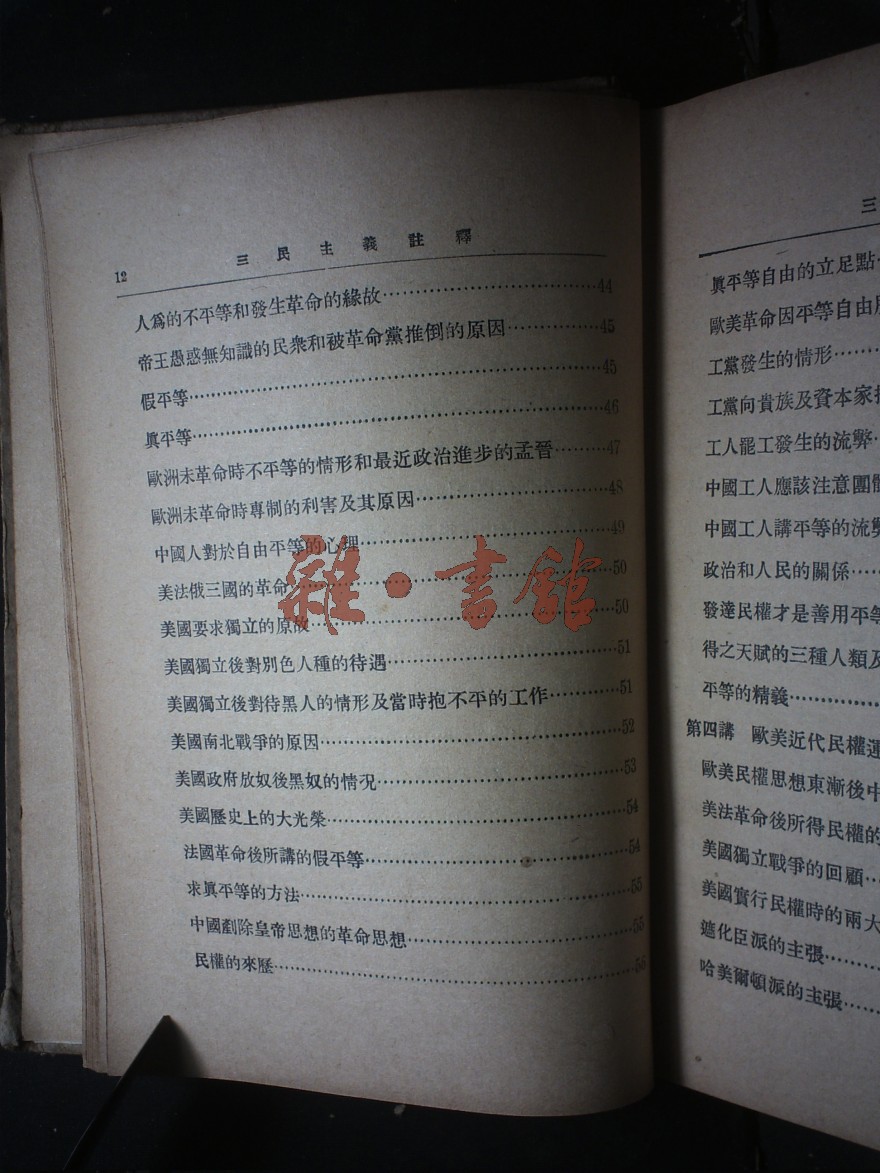 12 三民主義註釋
人爲的不平等和發生革命的緣故……………44
帝王愚惑無知識的民衆和被革命黨推倒的原因……………45
假平等……………45
眞平等……………46
歐洲未革命時不平等的情形和最近政治進步的孟晉……………47
歐洲未革命時專制的利害及其原因……………48
中國人對於自由平等的心理……………49
美法俄三國的革命……………50
美國要求獨立的原故……………50
美國獨立後對別色人種的待遇……………51
美國獨立後對待黑人的情形及當時抱不平的工作……………51
美國南北戰爭的原因……………52
美國政府放奴後黑奴的情况……………53
美國歷史上的大光榮……………54
法國革命後所講的假平等……………54
求眞平等的方法……………55
中國剷除皇帝思想的革命思想……………55
民權的來歷……………56
雜·書館
三
眞平等自由的立足點
歐美革命因平等自由
工黨發生的情形……
工黨向貴族及資本家
工人罷工發生的流弊
中國工人應該注意團體
中國工人講平等的流弊
政治和人民的關係……
發達民權才是善用平等
得之天賦的三種人類及
平等的精義……………
第四講 歐美近代民權運
歐美民權思想東漸後中
美法革命後所得民權的
美國獨立戰爭的回顧……
美國實行民權時的兩大
遮化臣派的主張……
哈美爾頓派的主張……